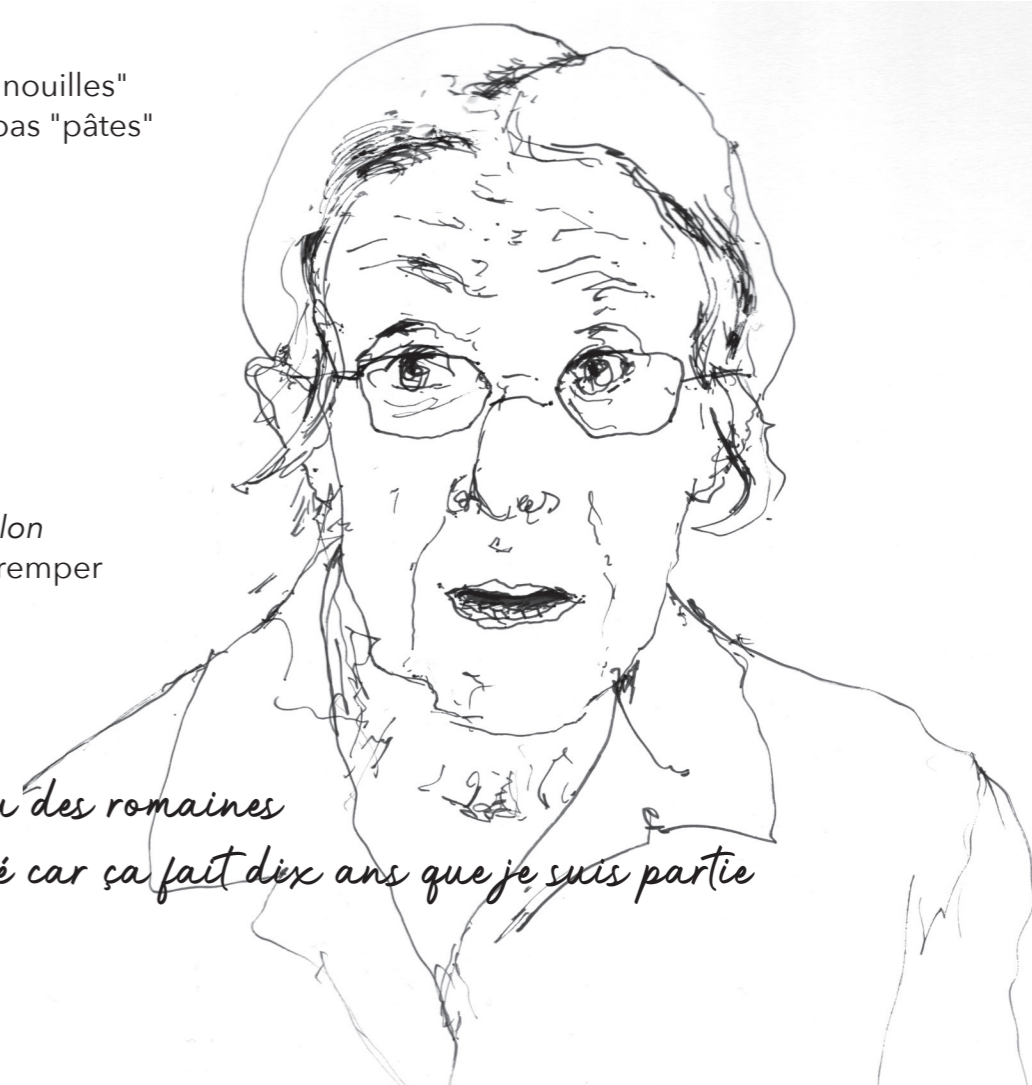 nouilles"
pas "pâtes"
lon
remper
des romaines
é car ça fait dix ans que je suis partie